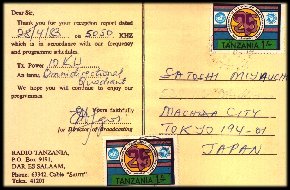 Dear Sir,
Thank you for your reception report dated
28/4/83 on 5050 KHZ
which is in accordance with our frequency
and programme schedules.
Tx. Power 10KW
An tenna, Omnidirectional
Quadrant
We hope you will continue to enjoy our
programmes.
Yours faithfully
for Director of Broadcasting
RADIO TANZANIA,
P.O. Box 9191,
DAR ES SALAAM,
Phones, 63342. Cable "SAUTI"
Telex, 41201
25
TANZANIA 1/-
SATOSHI MIYAUCHI
MACHIDA CITY
TOKYO 194-01
JAPAN
25
TANZANIA 1/-